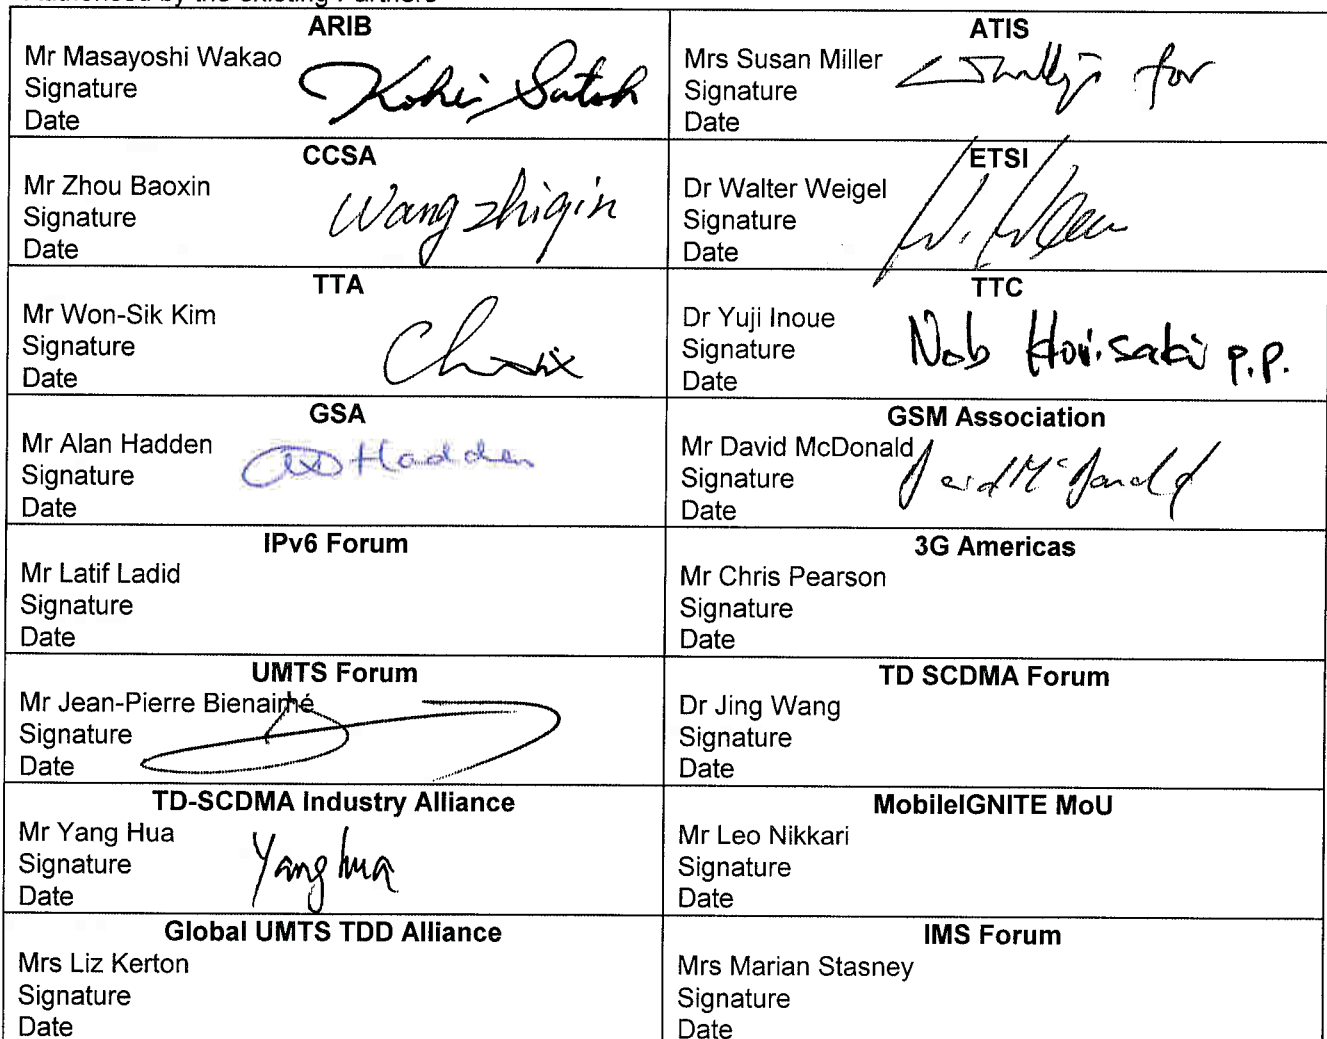 Authorised by the existing Partners
ARIB
Mr Masayoshi Wakao
Signature
Date
Kohei Satoh
ATIS
Mrs Susan Miller
Signature
Date
for
CCSA
Mr Zhou Baoxin
Signature
Date
Wang zhiqin
ETSI
Dr Walter Weigel
Signature
Date
TTA
Mr Won-Sik Kim
Signature
Date
TTC
Dr Yuji Inoue
Signature
Date
Nob Horisaki p.p.
GSA
Mr Alan Hadden
Signature
Date
Hadden
GSM Association
Mr David McDonald
Signature
Date
David McDonald
IPv6 Forum
Mr Latif Ladid
Signature
Date
3G Americas
Mr Chris Pearson
Signature
Date
UMTS Forum
Mr Jean-Pierre Bienaimé
Signature
Date
TD SCDMA Forum
Dr Jing Wang
Signature
Date
TD-SCDMA Industry Alliance
Mr Yang Hua
Signature
Date
Yang hua
MobileIGNITE MoU
Mr Leo Nikkari
Signature
Date
Global UMTS TDD Alliance
Mrs Liz Kerton
Signature
Date
IMS Forum
Mrs Marian Stasney
Signature
Date